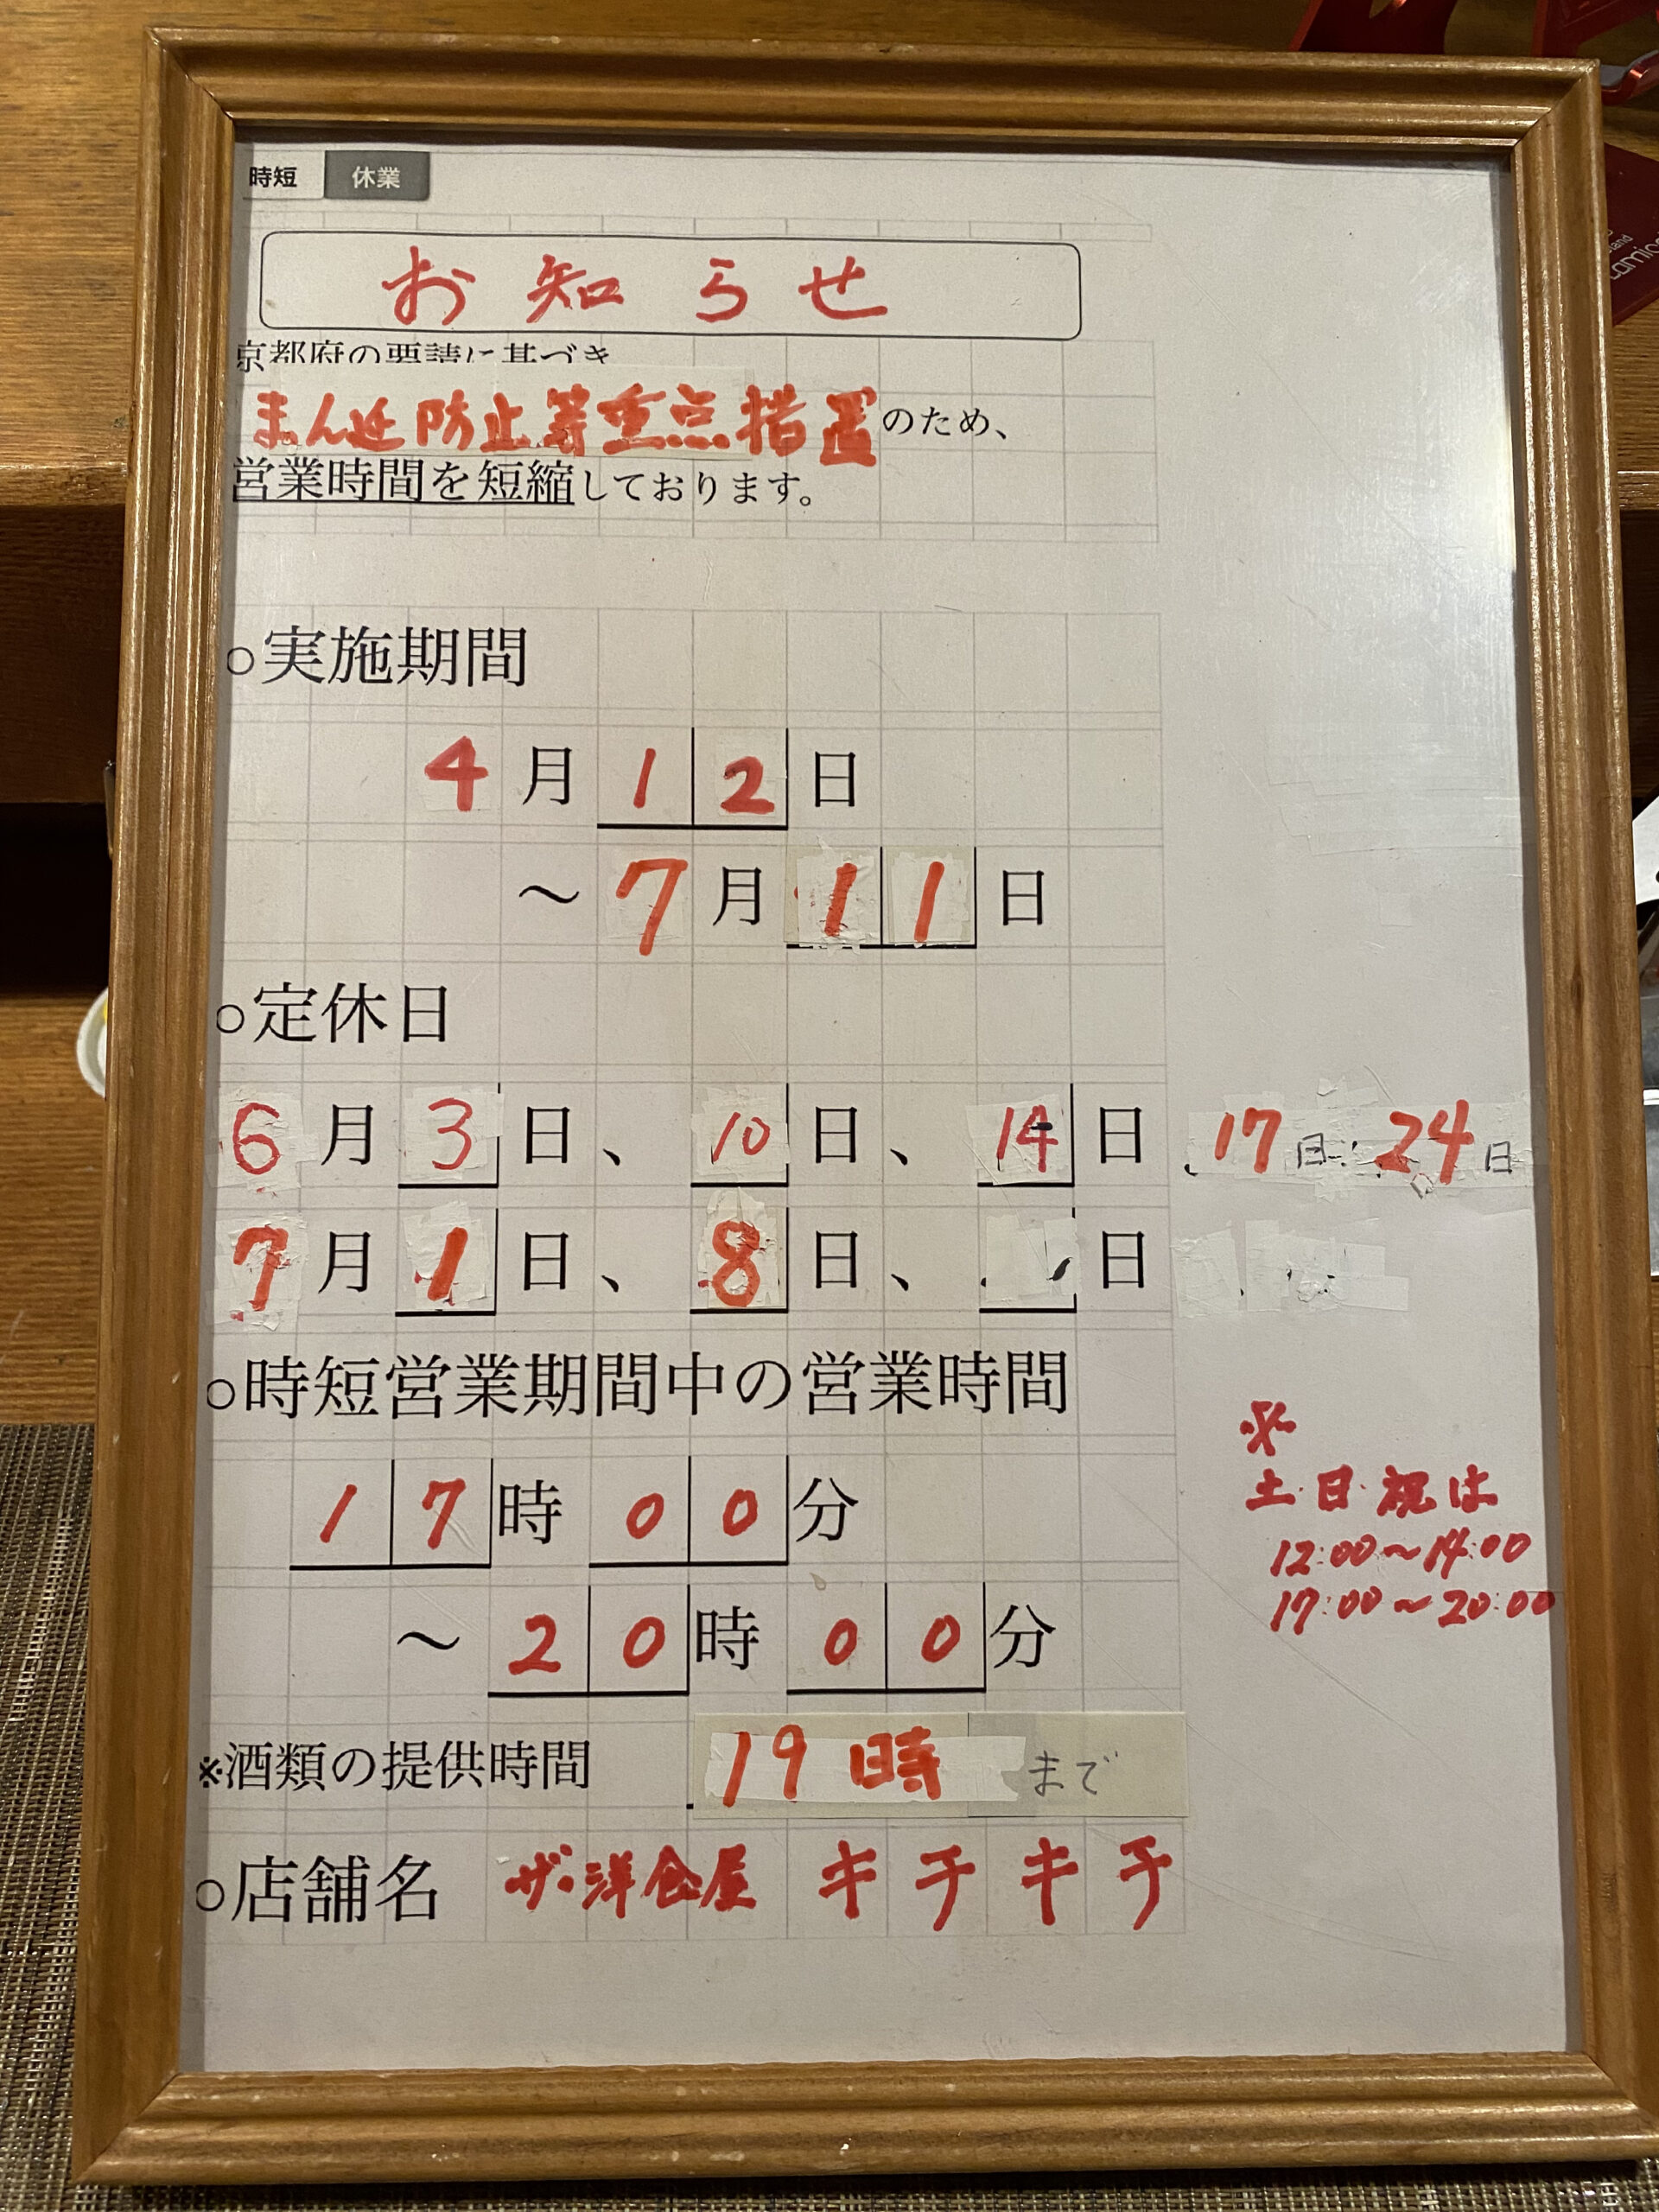 時短 休業
お知らせ
京都府の要請に基づき
まん延防止等重点措置のため、
営業時間を短縮しております。
○実施期間
4月12日
～7月11日
○定休日
6月3日、10日、14日、17日、24日
7月1日、8日、日
○時短営業期間中の営業時間
17時00分
～20時00分
※
土・日・祝は
12:00～14:00
17:00～20:00
※酒類の提供時間 19時まで
○店舗名 ザ・洋食屋 キチキチ